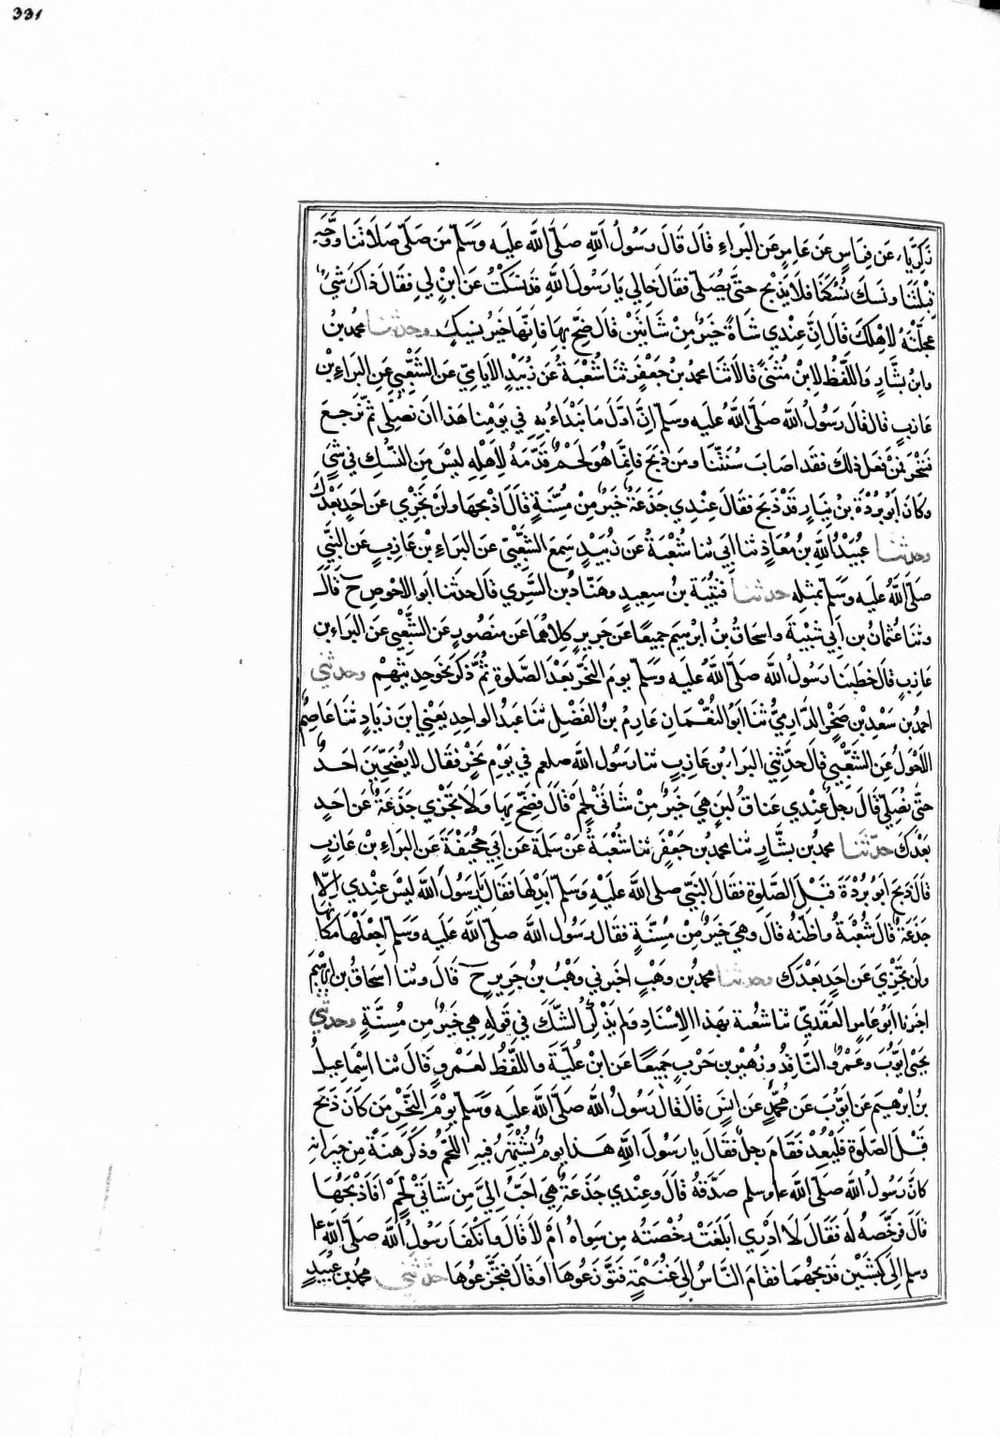 331
زَكَرِيَّاء عَن فِرَاسٍ عَن عَامِرٍ عَن البَراءِ قَال قَالَ رَسُولُ اللَّهِ صَلَّى اللَّه عَلَيه وَسَلَّم مَن صَلَّى صَلَاتَنَا وَوَجَّهَ
قِبْلَتَنَا وَنَسَكَ نُسُكَنَا فَلَا يَذْبَح حَتَّى يُصَلِّي فَقَالَ خَالِي يَا رَسُولَ اللَّهِ قَد نَسَكْتُ عَن ابْنٍ لِي فَقَالَ ذَاكَ شَيْءٌ
عَجَّلْتَهُ لِأَهْلِكَ قَالَ إِنَّ عِنْدِي شَاةً خَيْرٌ مِنْ شَاتَيْنِ قَالَ ضَحِّ بِهَا فَإِنَّهَا خَيْرُ نَسِيكَةٍ وحدثنا محمد بْنُ
وابنُ بَشَّارٍ وَاللَّفْظُ لِابْنِ مُثَنَّى قَالَا ثَنَا محمد بن جَعْفَرٍ ثنا شُعْبَة عَن زُبَيْدٍ الايَامِيّ عَن الشَّعْبِيِّ عَن البَرَاءِ بْنِ
عَازِبٍ قَالَ قَالَ رَسُولُ اللَّه صَلَّى اللَّهُ عَلَيه وَسَلَّم إِنَّ أَوَّلَ مَا نَبْدَاءُ بِهِ فِي يَوْمِنَا هَذَا أن نُصَلِّي ثُمَّ نَرْجِعَ
فَنَنْحَرَ فَمَنْ فَعَلَ ذَلِكَ فَقَد أَصَابَ سُنَّتَنَا وَمَن ذَبَحَ فَإِنَّمَا هُوَ لَحْمٌ قَدَّمَهُ لِأَهْلِهِ لَيْسَ مِنَ النُّسُكِ فِي شَيْءٍ
وَكَانَ أَبُو بُرْدَةَ بْنُ نِيَارٍ قَدْ ذَبَحَ فَقَالَ عِنْدِي جَذَعَةٌ خَيْرٌ مِنْ مُسِنَّةٍ قَالَ اذْبَحْهَا وَلَن تَجْزِي عَن أَحَدٍ بَعْدَكَ
وحدثنا عُبَيْدُ اللَّهِ بْن مُعَاذٍ ثنا أَبِي ثنا شُعْبَةُ عَن زُبَيْدٍ سَمِعَ الشَّعْبِيَّ عَن البَرَاءِ بْنِ عَازِبٍ عَن النَّبِيِّ
صَلَّى اللَّهُ عَلَيه وَسَلَّم بمثله حدثنا قُتَيْبَة بن سَعِيدٍ وهَنَّادُ بْن السَّرِي قَالَ حدثنا أبو الأحوصِ ح قَالَ
وثنا عُثْمَانُ بن أَبِي شَيْبَةَ وإسحَاقُ بْنُ ابْرهِيم جَمِيعًا عَن جَرِيرٍ كِلَاهُمَا عَن مَنْصُورٍ عَن الشَّعْبِي عَن البَرَاءِ بن
عَازِبٍ قَالَ خَطَبَنَا رَسُولُ اللَّه صَلَّى اللَّهُ عَلَيه وَسَلَّم يَومَ النَّحْرِ بَعْدَ الصَّلَوة ثُمَّ ذَكَرَ نَحْوَ حَدِيثِهِمْ وحدثني
أحمدُ بن سَعْدِ بْنِ صَخْرٍ الدَّارِمِيُّ ثنا أَبُو النُّعْمَانِ عَارِمُ بْنُ الفَضْلِ ثنا عَبْدُ الوَاحِدِ يَعْنِي ابْنَ زِيَادٍ ثَنَا عَاصِمٌ
الأَحْوَلُ عَن الشَّعْبِيِّ قَالَ حَدَّثَنِي البَرَاءُ بْن عَازِبٍ ثنا رَسُول اللَّه صلعم في يَوْمِ نَحْرٍ فَقَال لَا يُضَحِّيَنَّ أَحَدٌ
حَتَّى يُصَلِّي قَالَ رَجُلٌ عِنْدِي عَنَاقُ لَبَنٍ هِيَ خَيْرٌ مِنْ شَاتَيْ لَحْمٍ قَالَ فَضَحِّ بِهَا وَلَا تَجْزِي جَذَعَةٌ عَن أَحَدٍ
بَعْدَكَ حدّثنا محمد بن بشَّارٍ ثنا محمد بن جَعْفَرٍ ثنا شُعْبَةُ عَنْ سَلَمَةَ عَن أَبِي جُحَيْفَةَ عَن البَرَاءِ بْن عَازِبٍ
قَالَ ذَبَحَ أَبُو بُرْدَةَ قَبْلَ الصَّلَوة فَقَالَ النَّبِيّ صلى اللَّه عَلَيْهِ وَسَلَّم أَبْدِلْهَا فَقَالَ يَا رَسُولَ اللَّه لَيْسَ عِنْدِي إلا
جَذَعَةٌ قَالَ شُعْبَةُ وَأَظُنُّهُ قَالَ وَهِيَ خَيْرٌ مِنْ مُسِنَّةٍ فَقَالَ رَسُول اللَّه صَلَّى اللَّه عَلَيه وَسَلَّم اجْعَلْهَا مَكَانَهَا
وَلَن تَجْزِيَ عَن أَحَدٍ بَعْدَكَ وحدثنا محمد بن وَهْبٍ أَخبَرَنِي وَهْبُ بْنُ جَرِيرٍ ح قَالَ وثنا إسحَاقُ بن ابرهِيم
أخبرنا أَبُو عَامِرٍ العَقَدِيّ ثنا شعبة بهَذا الإسْنَادِ وَلَم يَذْكُر الشَّكَّ فِي قَولِهِ هِيَ خَيْرٌ مِن مُسِنَّةٍ وحدثني
يحيى أَيُّوبَ وَعَمْرٌو النَّاقِدُ وَزُهَيْرُ بن حَرْبٍ جَمِيعًا عَن ابْنِ عُلَيَّةَ واللَّفْظُ لِعَمْرٍو قَالَ ثنا إِسْمَاعِيلُ
بْنُ ابْرهِيمَ عَن أَيُّوبَ عَن مُحَمَّدٍ عَن أَنَسٍ قَالَ قَالَ رَسُولُ اللَّه صَلَّى اللَّه عَلَيه وَسَلَّم يَوْمَ النَّحْرِ مَن كَانَ ذَبَحَ
قَبْلَ الصَّلَوة فَلْيُعِدْ فَقَامَ رَجلٌ فَقَالَ يَا رَسُولَ اللَّهِ هَذَا يَومٌ يُشْتَهَى فِيهِ اللَّحْمُ وَذَكَرَ هَنَةً مِن جِيرَانِهِ
كَأَنَّ رَسُولَ اللَّه صَلَّى اللَّه عا وسلم صَدَّقَهُ قَالَ وعِنْدِي جَذَعَةٌ هِيَ أَحَبُّ إِلَيَّ مِن شَاتَيْ لَحْمٍ أَفَأَذْبَحُهَا
قَالَ فَرَخَّصَ لَهُ فَقَالَ لَا أَدْرِي أَبَلَغَتْ رُخْصَتُه مَن سِوَاهُ أَمْ لَا قَالَ وَانْكَفَأَ رَسُولُ اللَّهِ صَلَّى اللَّه عا
وسلم إِلَى كَبْشَيْنِ فَذَبَحَهُمَا فَقَامَ النَّاسُ إِلَى غُنَيْمَةٍ فَتَوَزَّعُوهَا أَو قَالَ فَتَجَزَّعُوهَا حدثني محمد بن عُبَيْدٍ